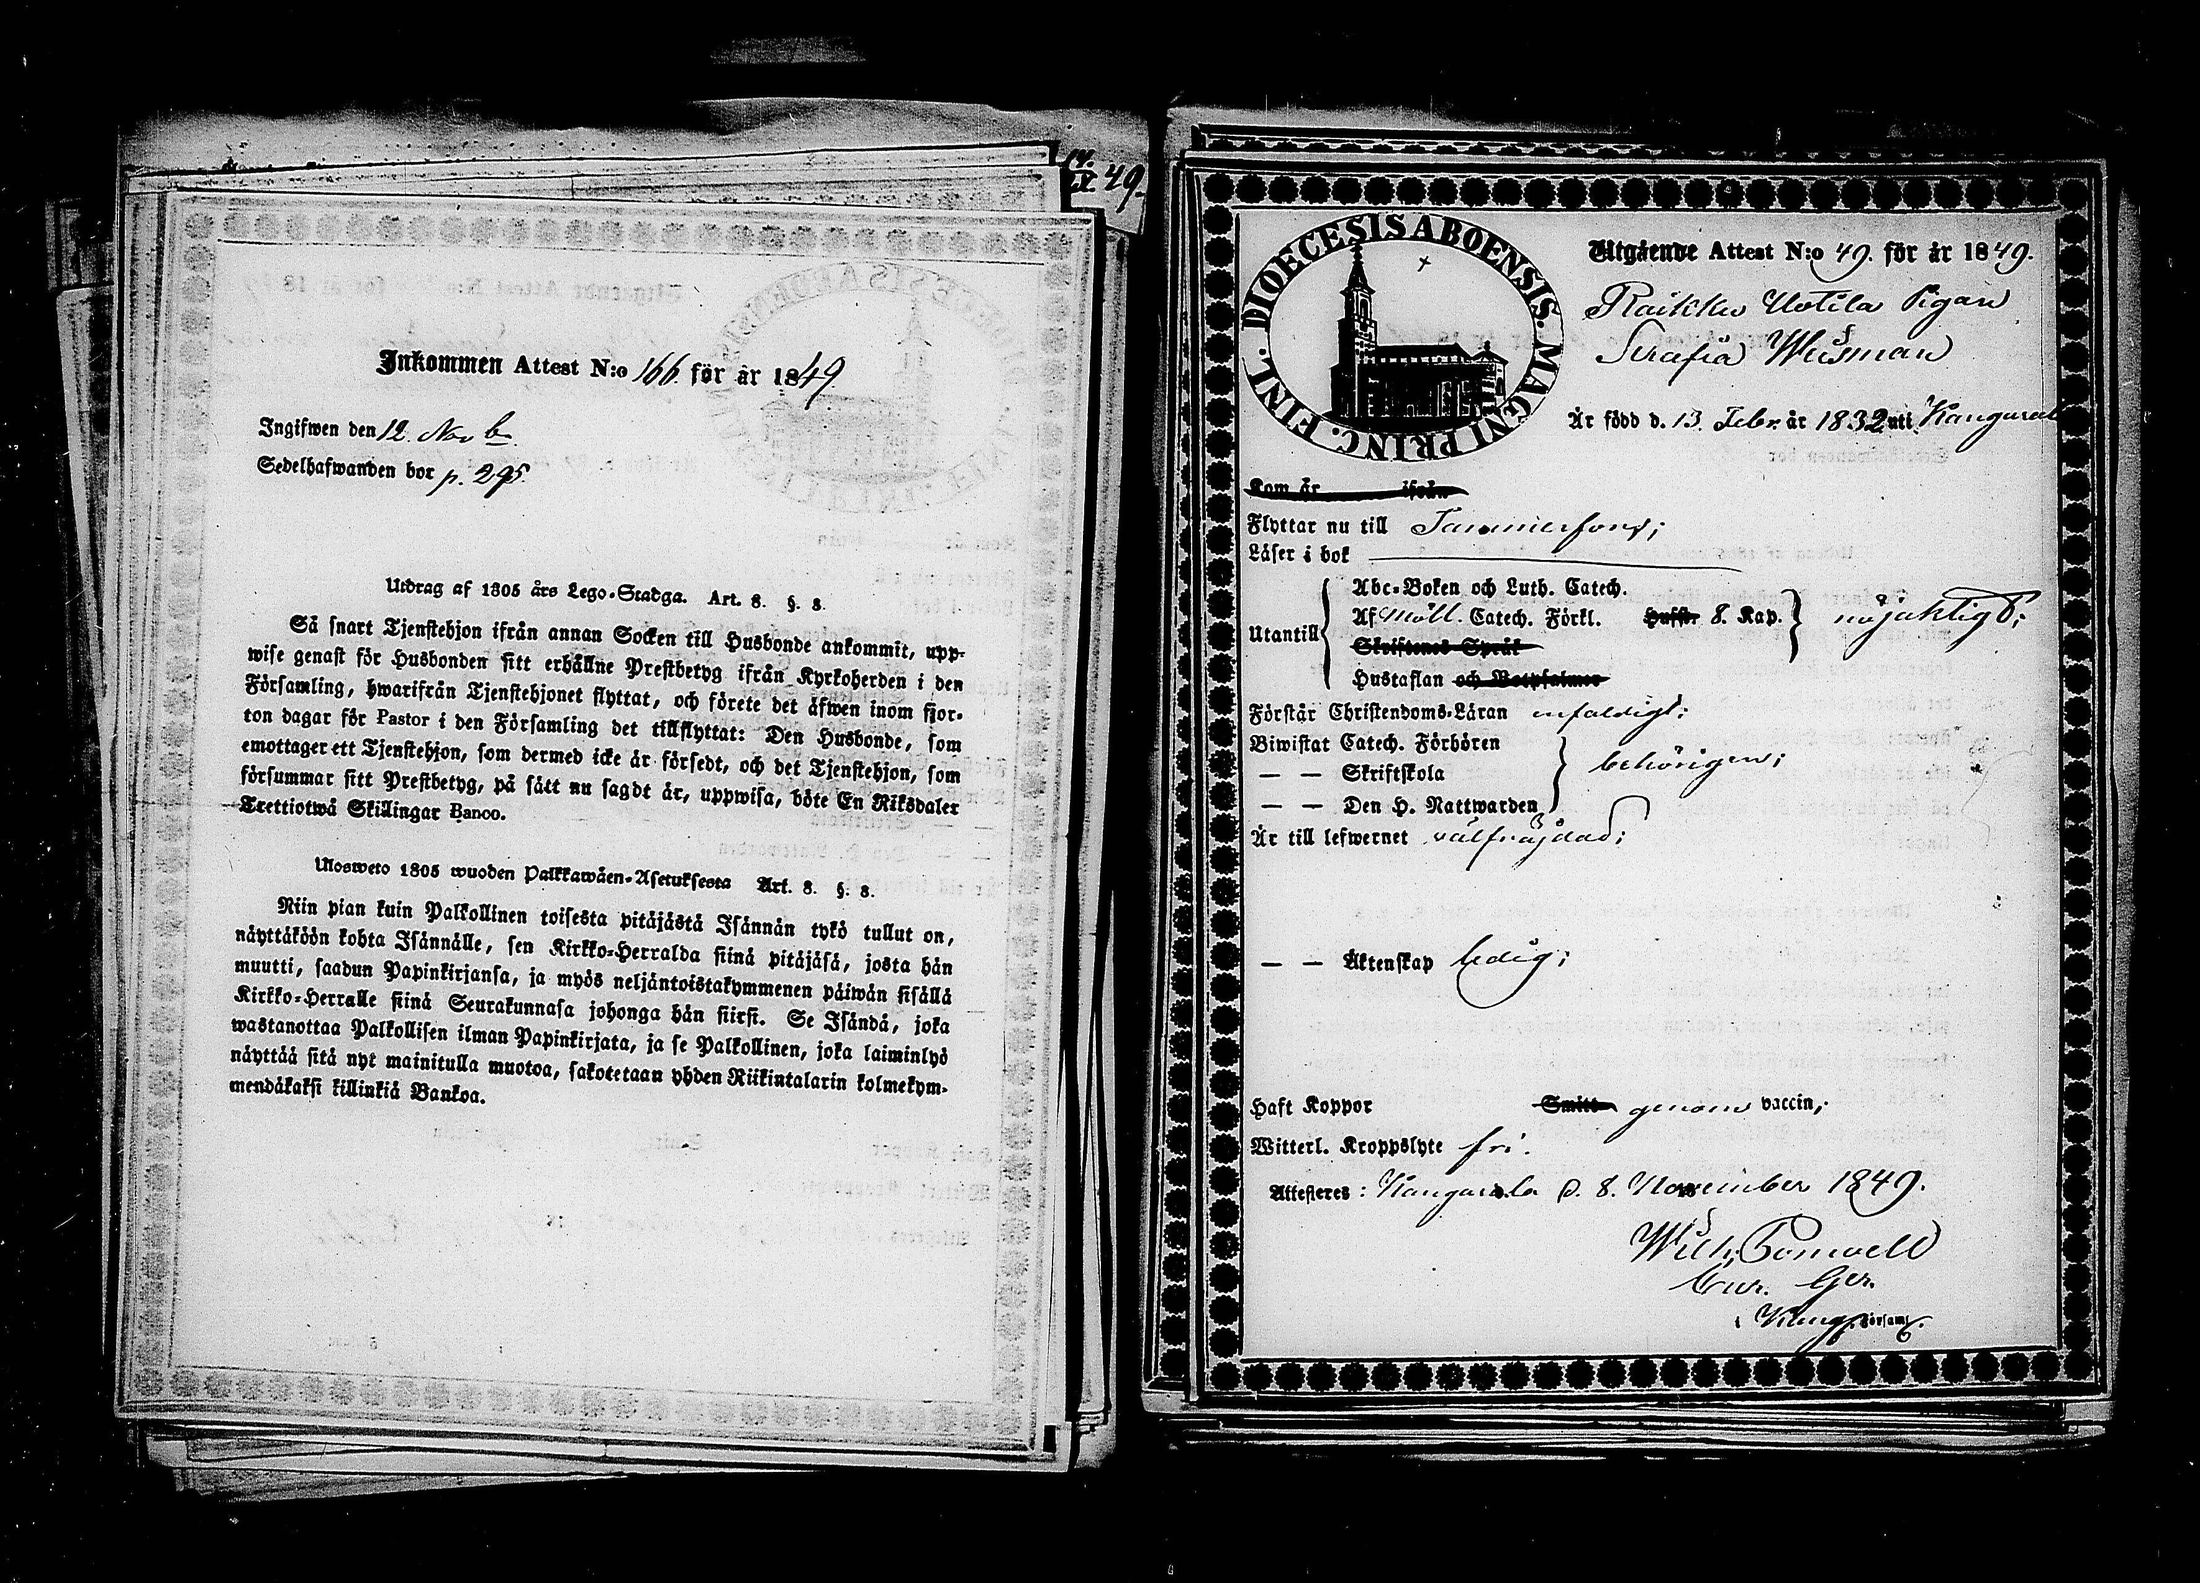 Inkommen Attest N:o 166. för år 1849
Ingifwen den 12 Novb
Sedelhafwanden bor p. 295.
Utdrag af 1805 års Lego-Stadga. Art. 8. §. 8.
Så snart Tjenstehjon ifrån annan Socken till Husbonde ankommit, upp-
wise genast för Husbonden sitt erhållne Prestbetyg ifrån Kyrkoherden i den
Församling, hwarifrån Tjenstehjonet flyttat, och förete det äfwen inom fjor-
ton dagar för Pastor i den Församling det tillflyttat: Den Husbonde, som
emottager ett Tjenstehjon, som dermed icke är försedt, och det Tjenstehjon, som
försummar sitt Prestbetyg, på sätt nu sagdt är, uppwisa, böte En Riksdaler
Trettiotwå Skillingar Banco.
Ulosweto 1805 wuoden Palkkawäen-Asetuksesta Art. 8. §. 8.
Niin pian kuin Palkollinen toisesta pitäjästä Isännän tykö tullut on,
näyttäköön kohta Isännälle, sen Kirkko-Herralda siinä pitäjäsä, josta hän
muutti, saadun Papinkirjansa, ja myös neljäntoistakymmenen päiwän sisällä
Kirkko-Herralle siinä Seurakunnasa johonga hän siirsi. Se Isändä, joka
wastanottaa Palkollisen ilman Papinkirjata, ja se Palkollinen, joka laiminlyö
näyttää sitä nyt mainitulla muotoa, sakotetaan yhden Riikintalarin kolmekym-
mendäkaksi killinkiä Bankoa.
49.
DIOECESIS ABOENSIS. MAGNI PRINC. FINL.
Utgående Attest N:o 49. för år 1849.
Raikku Uotila Pigan
Serafia Wisman
Är född d. 13 Febr. år 1832 uti Kangasala
Kom år ifrån
Flyttar nu till Tammerfors;
Läser i bok
Utantill
Abc-Boken och Luth. Catech.
Af Möll. Catech. Förkl. Hufst. 8. Kap. nöjaktigt;
Skriftenes Språk
Hustaflan och Botpsalmer
Förstår Christendoms-Läran enfaldigt;
Biwistat Catech. Förhören
— — Skriftskola behörigen;
— — Den H. Nattwarden
Är till lefwernet välfräjdad;
— — Äktenskap ledig;
Haft Koppor Smitt genom vaccin;
Witterl. Kroppslyte fri.
Attesteres: Kangasala d. 8. November 1849.
Wilh. Ponwell
Cur. Ger.
i Kang. Församl.